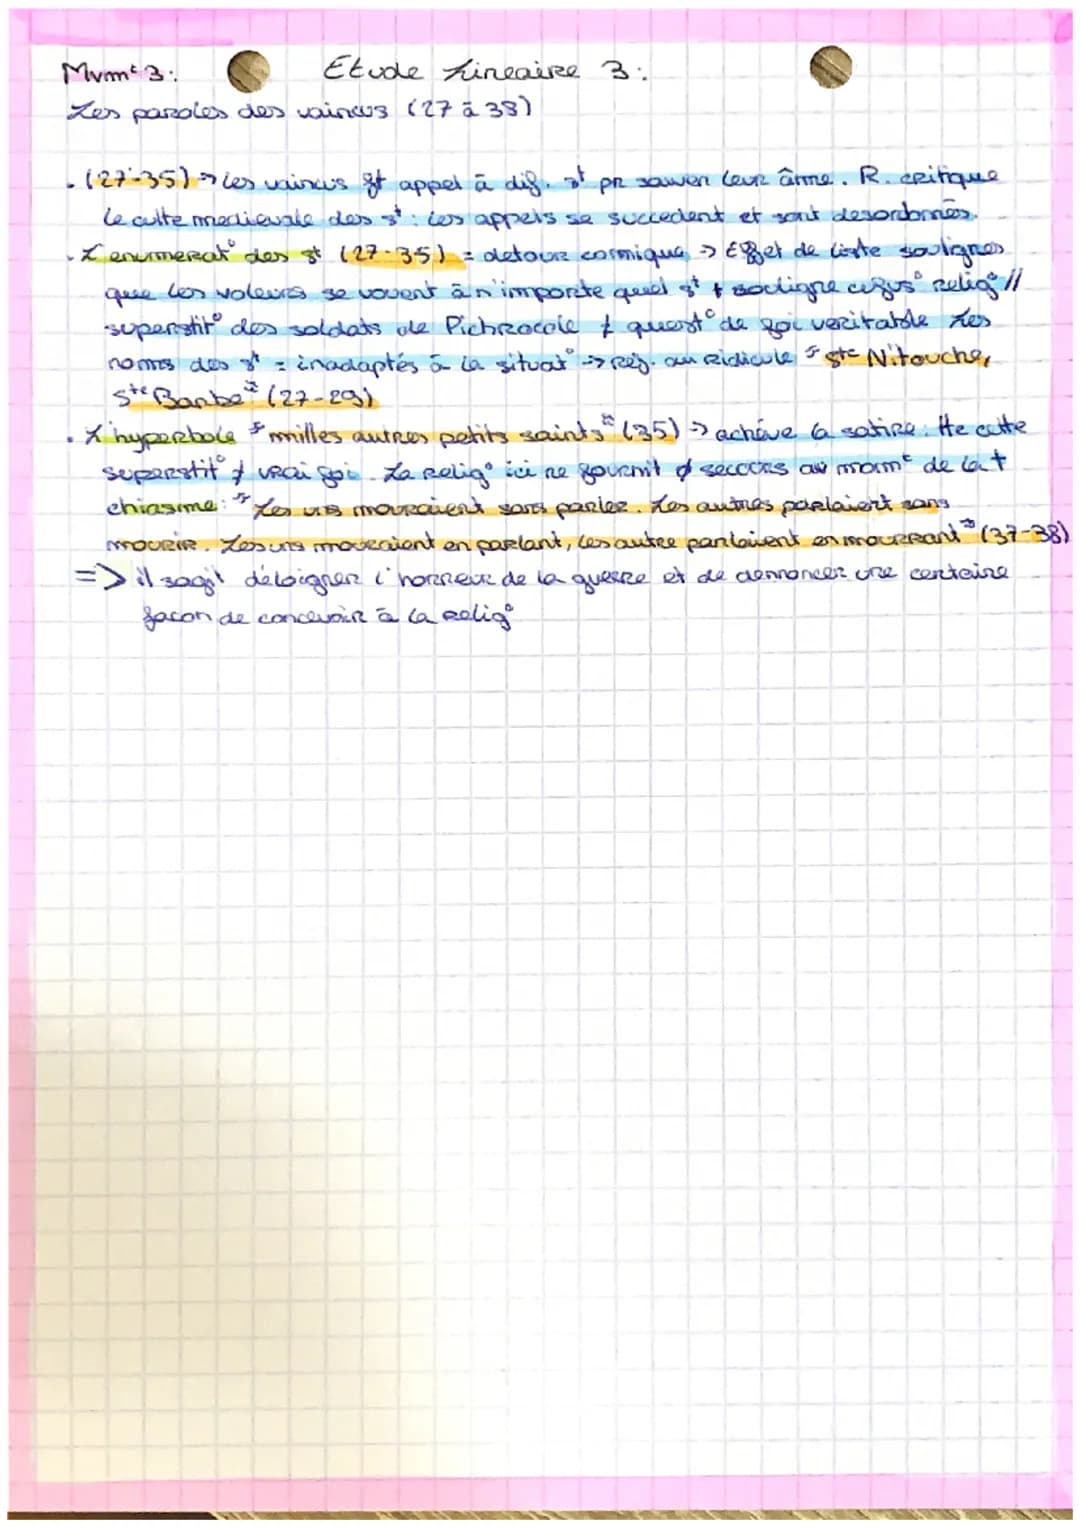 Mvmt 3: Etude Lineaire 3:
Les paroles des vaincus (27 à 38)
. (27-35) → Les vaincus ft appel à dif. st pr sauver leur âme. R. critique
le culte medievale des st : les appels se succedent et sont desordonnés.
. L'enumerat° des st (27-35) = detour comique → Effet de liste soulignes
que les voleurs se vouent à n'importe quel st + souligne cfus° relig° //
superstit° des soldats de Pichrocole ≠ quest° de foi veritable Les
noms des st = inadaptés à la situat° → Rej. au ridicule "ste Nitouche,
Ste Barbe" (27-29)
. L'hyperbole "milles autres petits saints" (35) → achéve la satire. He cette
superstit° ≠ vrai foi. La Relig° ici ne fournit ø seccours au momt de la †
chiasme: "Les uns mouraient sans parler. Les autres parlaient sans
mourir. Les uns mouraient en parlant, les autre parlaient en mourrant" (37-38)
=> il sagit déloigner l'horreur de la guerre et de dennoncer une certaine
façon de concevoir à la Relig°